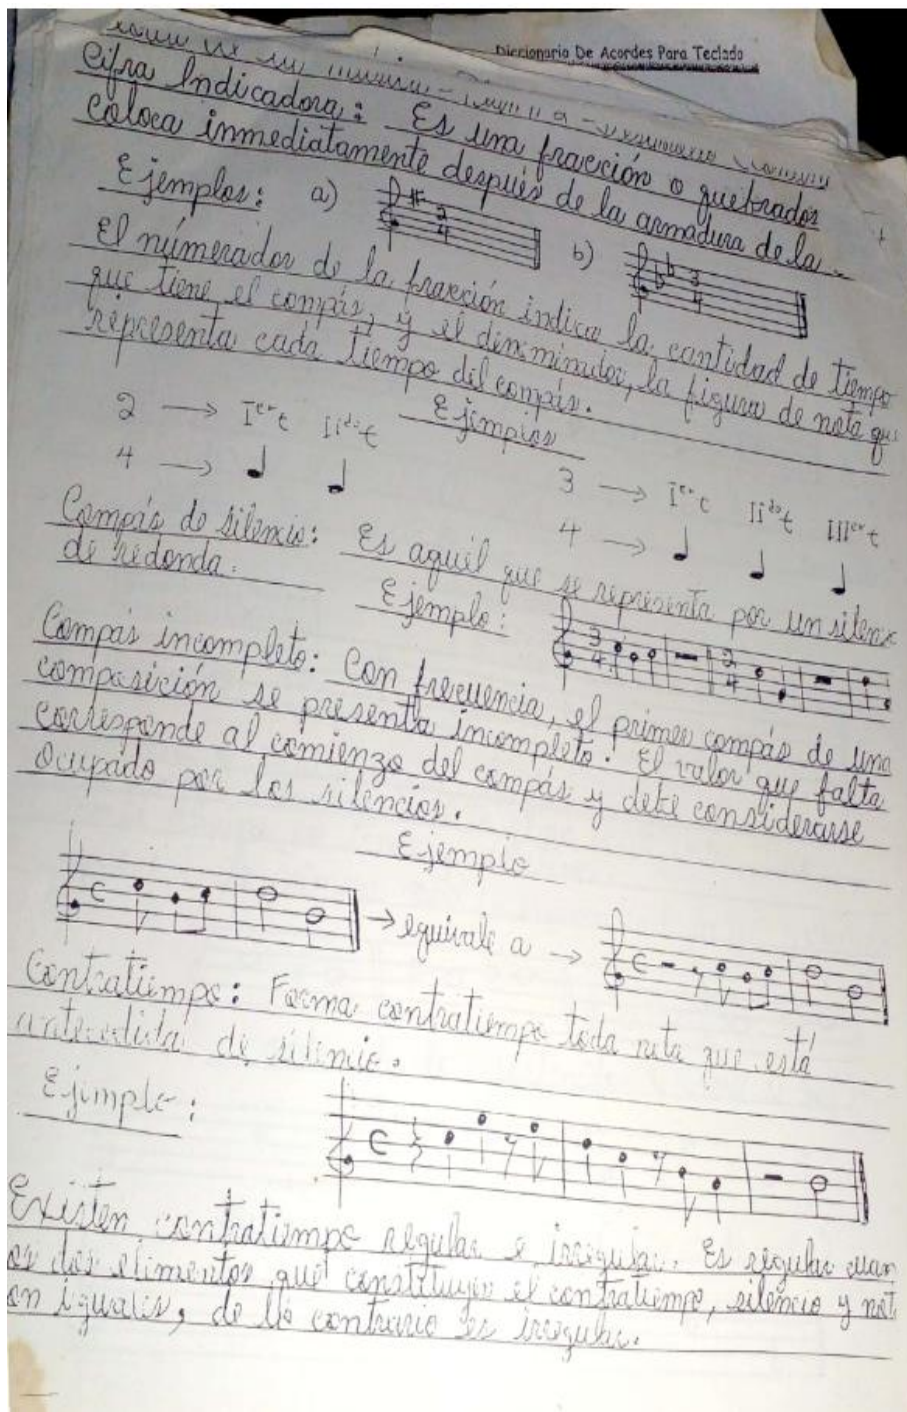 Diccionario De Acordes Para Teclado
Cifra Indicadora: Es una fracción o quebrados
coloca inmediatamente después de la armadura de la
Ejemplos: a) 2 4 b) 3 4
El númerador de la fracción indica la cantidad de tiempo
que tiene el compás, y el dinominador, la figura de nota que
representa cada tiempo del compás.
Ejemplos
2 → Iᵉʳt IIᵈᵒt
4 →
3 → Iᵉʳt IIᵈᵒt IIIᵉʳt
4 →
Compás de silencio: Es aquél que se representa por un silenc
de redonda.
Ejemplo: 3 4 2 4
Compás incompleto: Con frecuencia, el primer compás de una
composición se presenta incompleto. El valor que falta
corresponde al comienzo del compás y debe considerarse
Ocupado por los silencios.
Ejemplo
C → equivale a → C
Contratiempo: Forma contratiempo toda nota que está
antecedida de silencio.
Ejemplo: C
Existen contratiempo regular e irregular. Es regular cuan
os dos elimentos que constituyen el contratiempo, silencio y not
on iguales, de lo contrario es irregular.